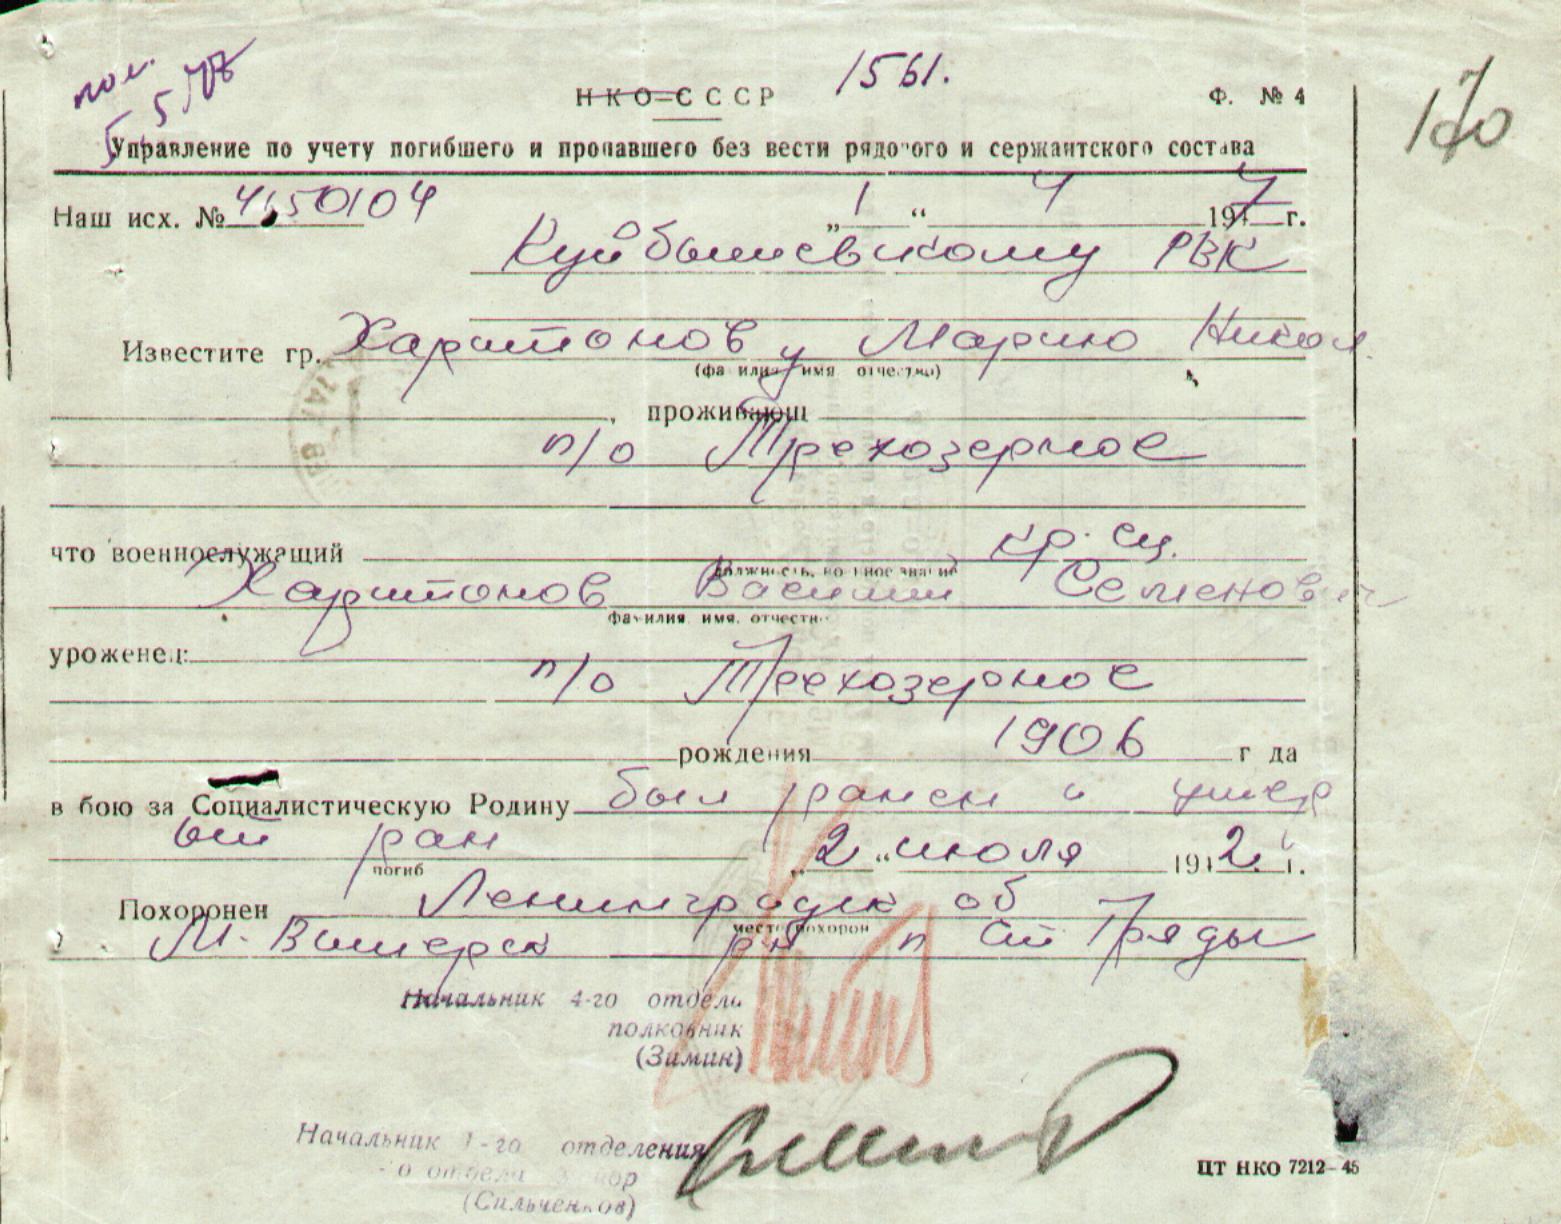 пол.
5.5.47
1561.
170
НКО-СССР
Ф. № 4
Управление по учету погибшего и пропавшего без вести рядового и сержантского состава
Наш исх. № 4150104 „1“ 4 1947 г.
Куйбышевскому РВК
Известите гр. Харитонову Марию Никол.
(фамилия, имя, отчество)
, проживающ
п/о Трехозерное
что военнослужащий кр-ец.
должность, военное звание
Харитонов Василий Семенович
фамилия, имя, отчество
уроженец:
п/о Трехозерное
рождения 1906 г да
в бою за Социалистическую Родину был ранен и умер
от ран „2“ июля 1942 г.
погиб
Похоронен Ленинградск об
место похорон
М-Вишерск р-н п ст Гряды
Начальник 4-го отдела
полковник
(Зимин)
Начальник 1-го отделения
го отдела
(Сильченков)
ЦТ НКО 7212-45